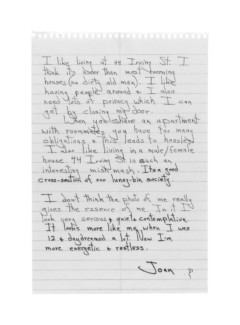 I like living at 44 Irving St. I
think its better than most rooming
houses (no dirty old men). I like
having people around & I also
need lots of privacy which I can
get by closing my door.
When you share an apartment
with roommates you have too many
obligations & this leads to hassles.
I also like living in a male/female
house. 44 Irving St is such an
interesting mish-mash. It's a good
cross-section of our looney-bin society.
I don't think the photo of me really
gives the essence of me. In it I
look very serious & quiet & contemplative.
It looks more like me when I was
12 & daydreamed a lot. Now I'm
more energetic & restless.
Joan